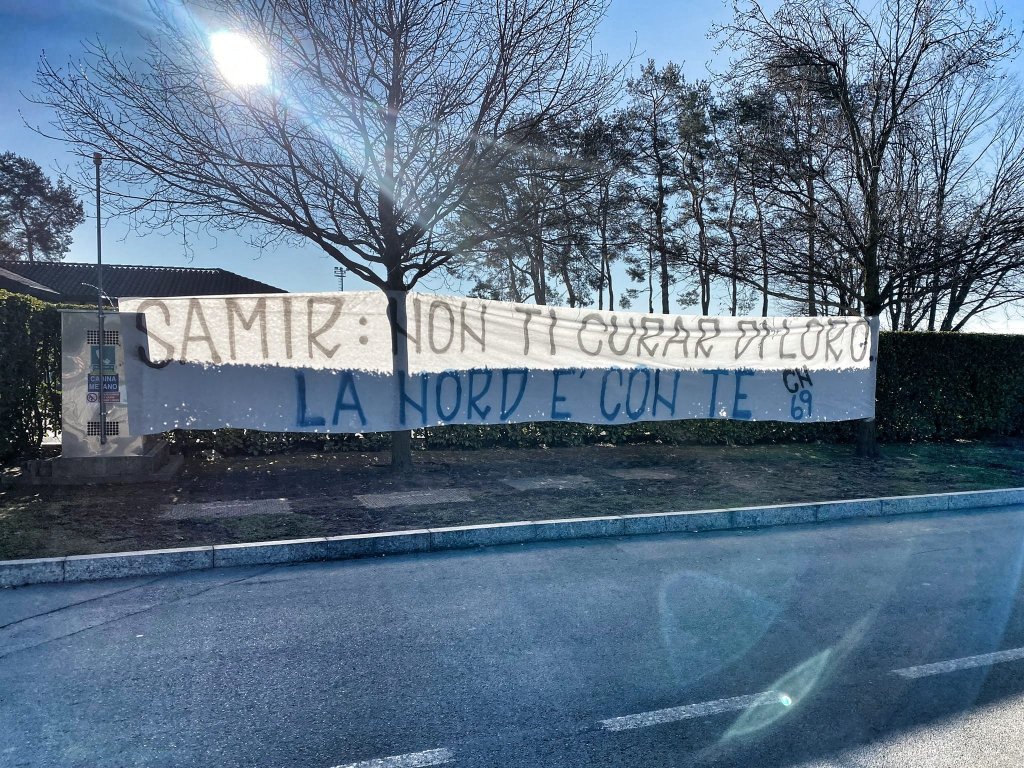 SAMIR: NON TI CURAR DI LORO.
LA NORD E' CON TE
CN
69
CABINA
METANO